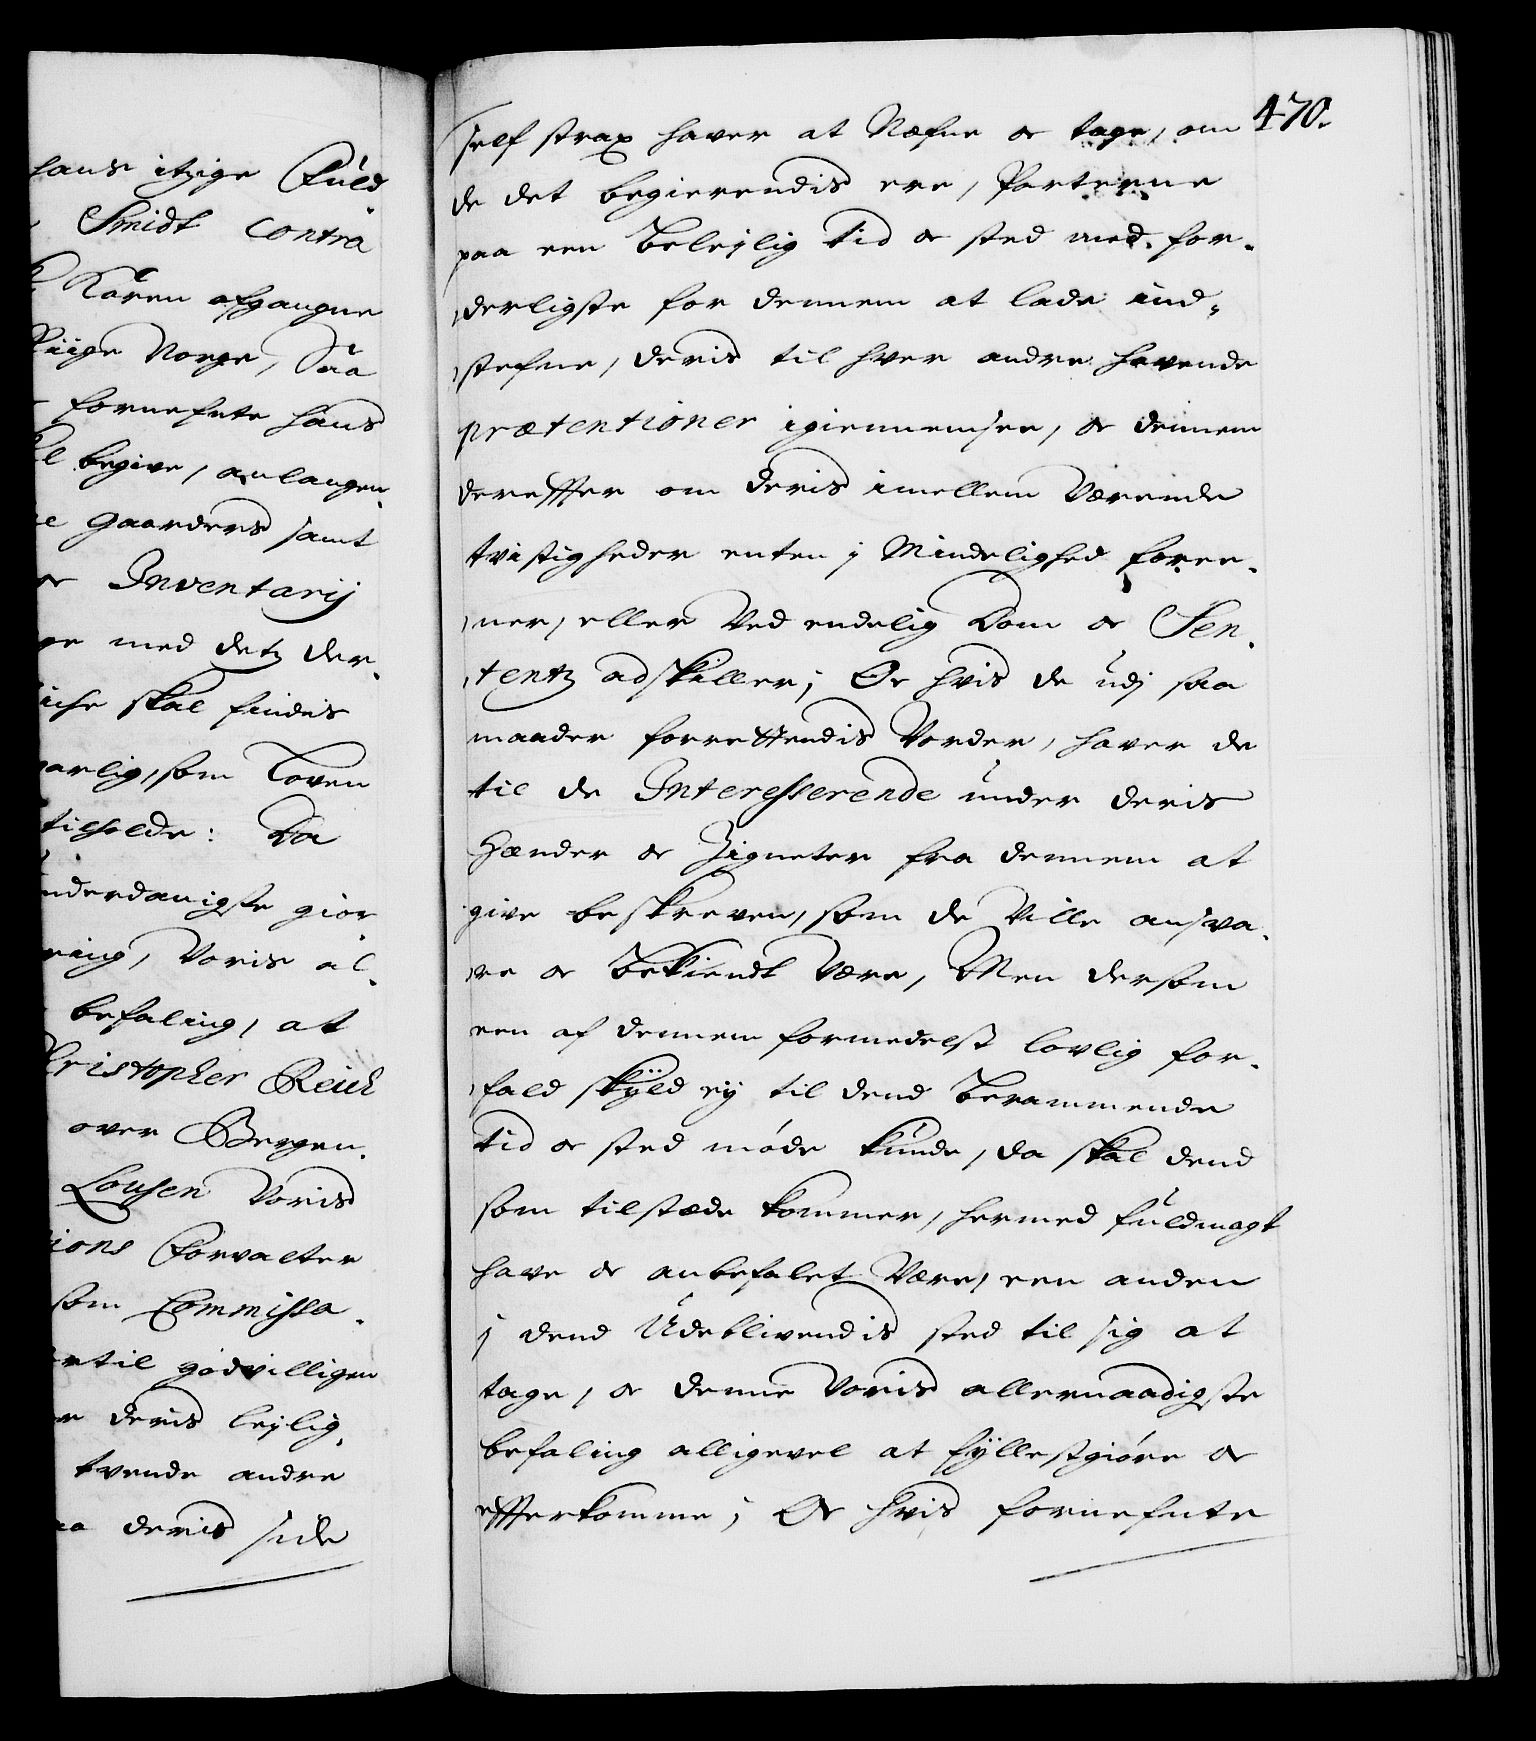 hans itzige Fuld
Smidt Contra
Karen afgangne
Riige Norge, Saa
fornefnte hans
begive, anlangen
Gaarders samt
Inventarij
med detz der
skal findis
som Loven
tilholde: Da
underdanigste giør
Voris al
befaling, at
Christopher Reich
over Bergen
Lousen Voris
Forvalter
som Commissa
godvilligen
deris leylig
tvende andre
deris side
470.
self strax haver at Næfne oc tage, om
de det begierendis ere, Parterne
paa een beleylig tid oc sted med for-
derligste for dennem at lade ind-
stefne, deris til hver andre havende
prætentioner igiennemsee, oc dennem
dereffter om deris imellem Værende
tvistigheder enten i Mindelighed foree-
ner, eller Ved endelig Dom oc Sen-
tentz adskiller; Oc hvis de udj saa
maader forrettendis Vorder, haver de
til de Interesserende under deris
Hænder oc Zigneter fra dennem at
give beskreven, som de Ville ansva-
re oc bekiendt Være, Men dersom
een af dennem formedelst lovlig for-
fald skyld ey til dend berammende
tid oc sted møde kunde, da skal dend
som tilstæde kommer, hermed fuldmagt
have oc anbefalet Være, een anden
i dend Udeblivendis sted til sig at
tage, oc denne Voris allernaadigste
befaling alligevel at fyllestgiøre oc
effterkomme; Oc hvis fornefnte